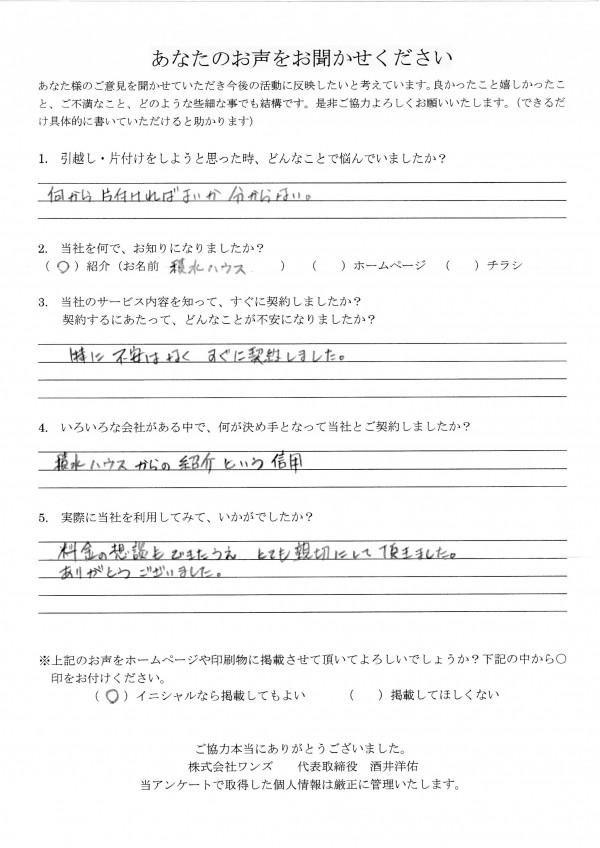 あなたのお声をお聞かせください
あなた様のご意見を聞かせていただき今後の活動に反映したいと考えています。良かったこと嬉しかったこ
と、ご不満なこと、どのような些細な事でも結構です。是非ご協力よろしくお願いいたします。（できるだ
け具体的に書いていただけると助かります）
1. 引越し・片付けをしようと思った時、どんなことで悩んでいましたか？
何から片付ければよいか分からない。
2. 当社を何で、お知りになりましたか？
（ ○ ）紹介（お名前 積水ハウス ） （ ）ホームページ （ ）チラシ
3. 当社のサービス内容を知って、すぐに契約しましたか？
契約するにあたって、どんなことが不安になりましたか？
特に不安はなく すぐに契約しました。
4. いろいろな会社がある中で、何が決め手となって当社とご契約しましたか？
積水ハウスからの紹介という信用
5. 実際に当社を利用してみて、いかがでしたか？
料金の想談もできたうえ とても親切にして頂きました。
ありがとうございました。
※上記のお声をホームページや印刷物に掲載させて頂いてよろしいでしょうか？下記の中から〇
印をお付けください。
（ ○ ）イニシャルなら掲載してもよい （ ）掲載してほしくない
ご協力本当にありがとうございました。
株式会社ワンズ 代表取締役 酒井洋佑
当アンケートで取得した個人情報は厳正に管理いたします。